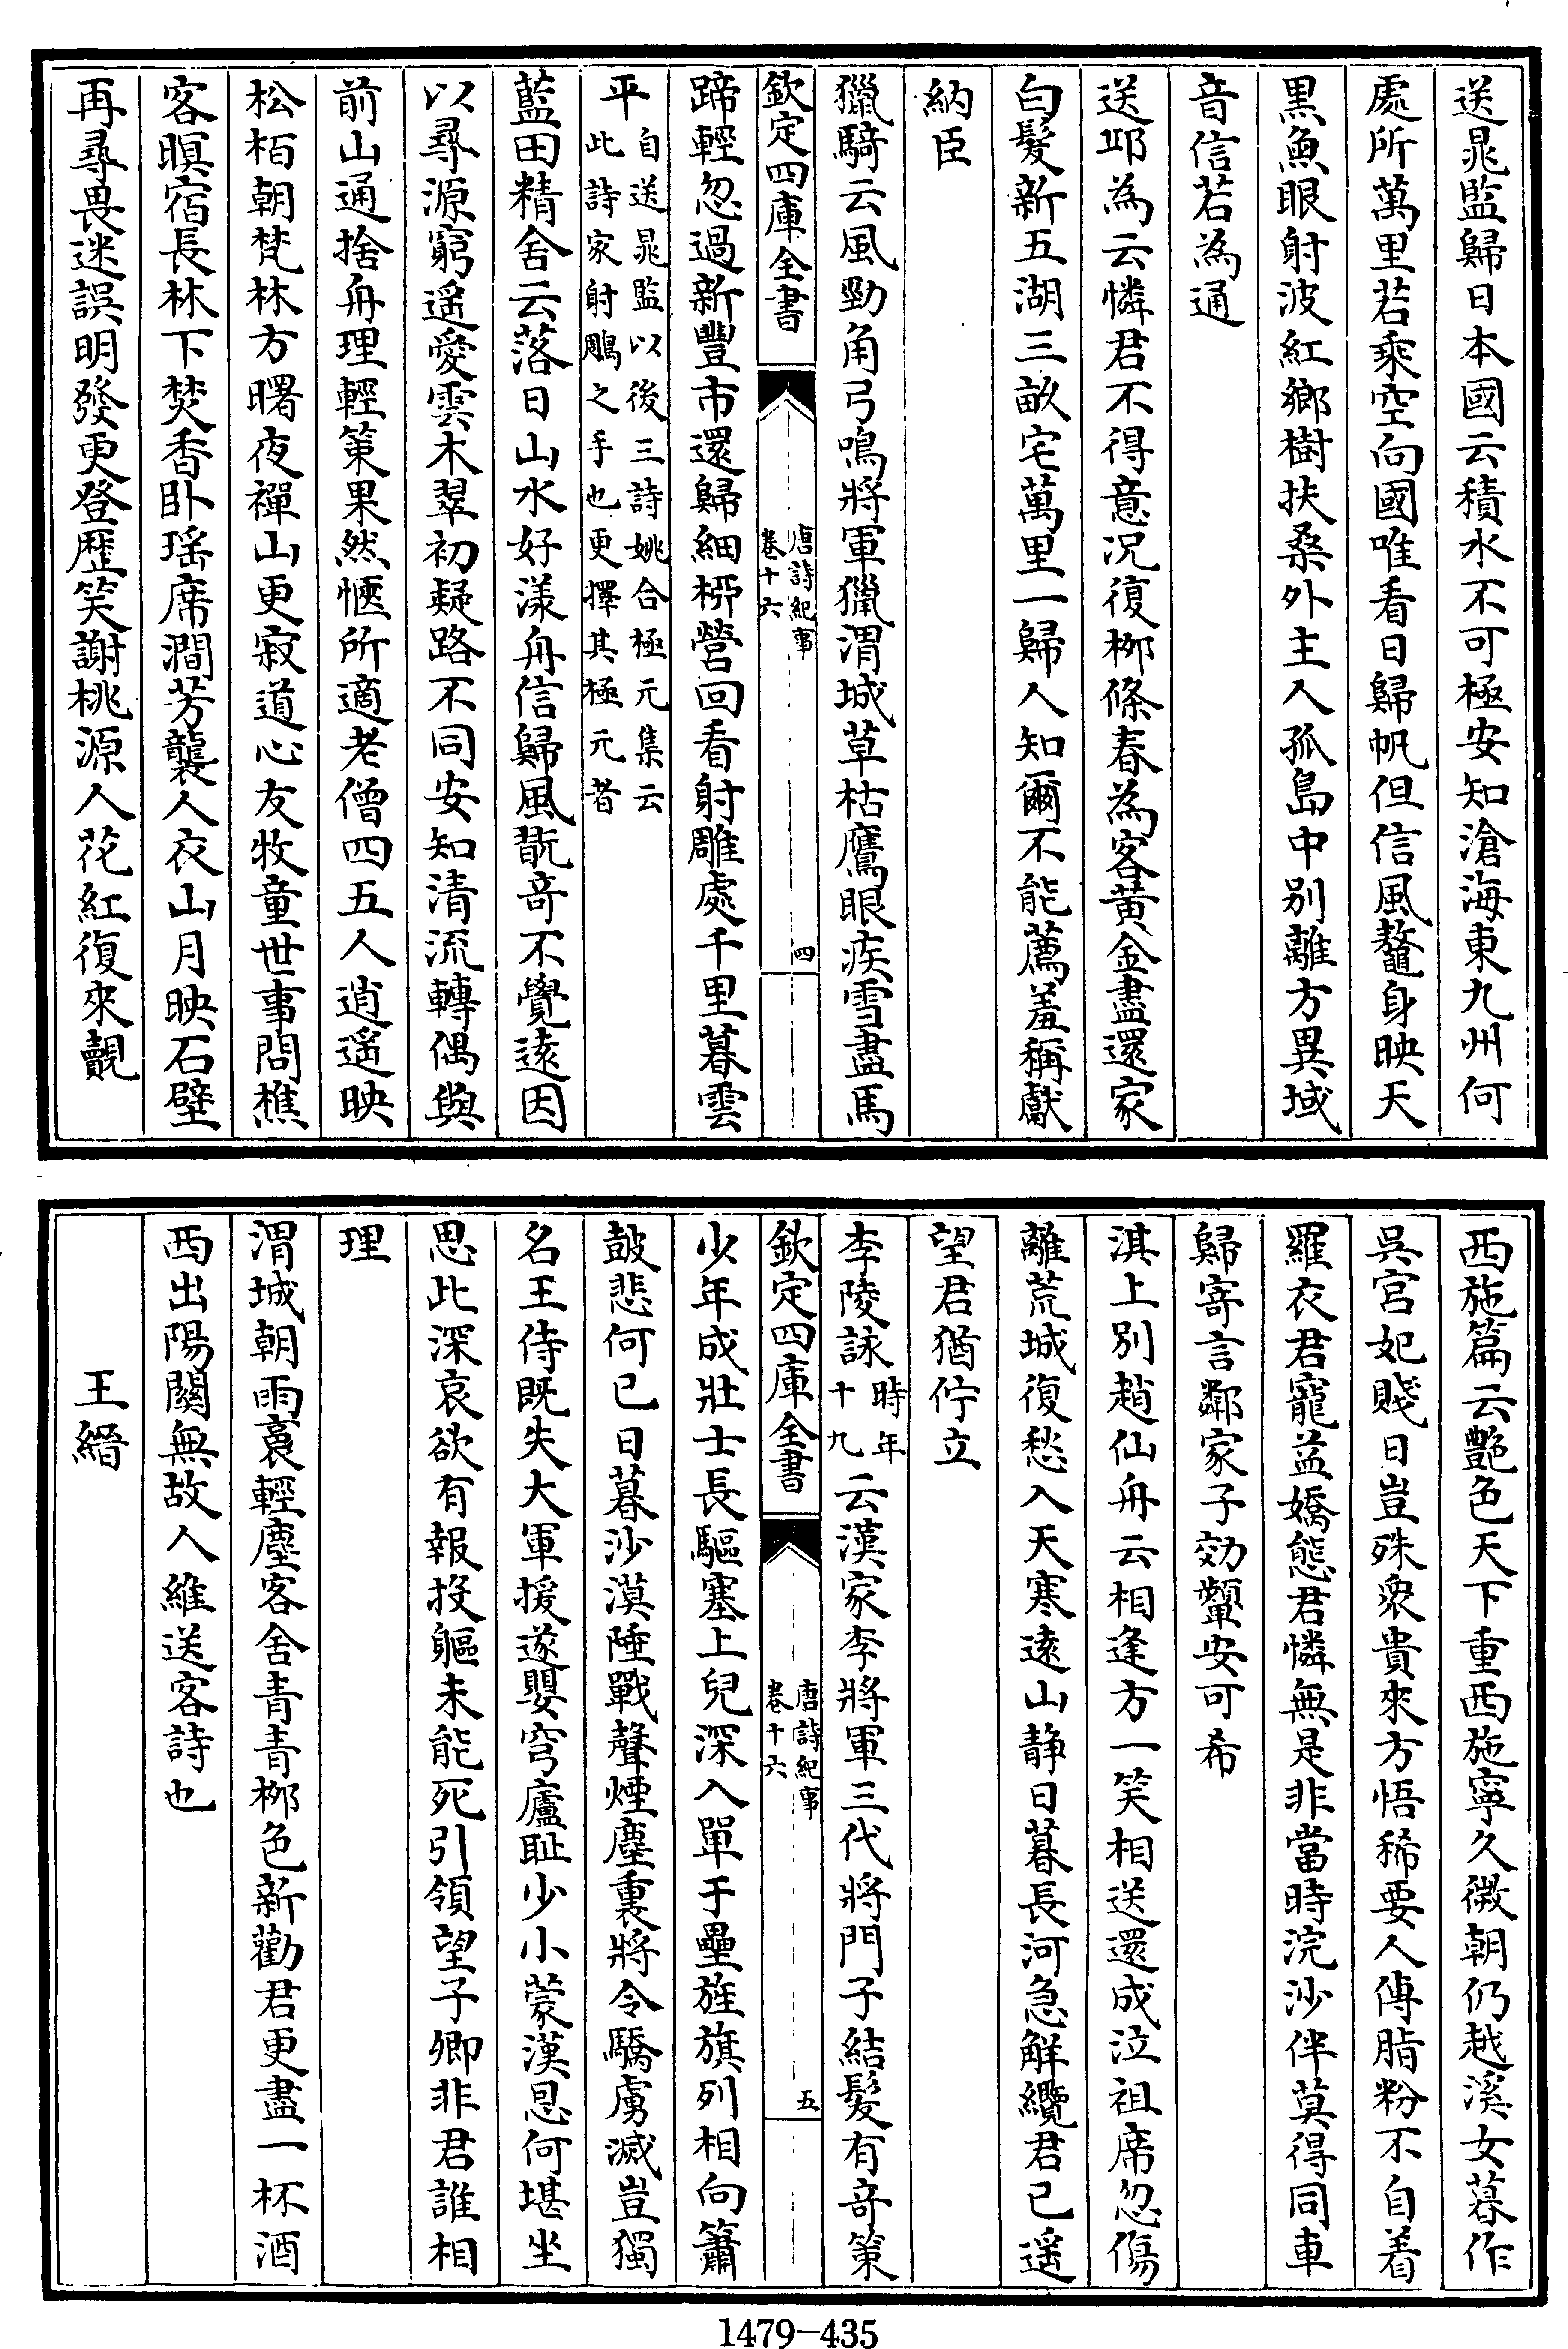 送晁監歸日本國云積水不可極安知滄海東九州何
處所萬里若乘空向國唯看日歸帆但信風鼇身映天
黒魚眼射波紅鄉樹扶桑外主人孤島中别離方異域
音信若為通
送邛為云憐君不得意况復栁條春為客黄金盡還家
白髮新五湖三畝宅萬里一歸人知爾不能薦羞稱獻
納臣
獵騎云風勁角弓鳴將軍獵渭城草枯鷹眼疾雪盡馬
欽定四庫全書
唐詩紀事
卷十六
四
蹄輕忽過新豐市還歸細栁營回看射雕處千里暮雲
平自送晁監以後三詩姚合極元集云
此詩家射鵰之手也更擇其極元者
藍田精舍云落日山水好漾舟信歸風翫竒不覺逺因
以尋源窮遥愛雲木翠初疑路不同安知清流轉偶與
前山通捨舟理輕策果然愜所適老僧四五人逍遥映
松栢朝梵林方曙夜禪山更寂道心友牧童世事問樵
客暝宿長林下焚香卧瑶席澗芳襲人衣山月映石壁
再尋畏迷誤明發更登歴笑謝桃源人花紅復來覿
西施篇云艶色天下重西施寧久微朝仍越溪女暮作
吳宫妃賤日豈殊衆貴來方悟稀要人傅脂粉不自着
羅衣君寵益嬌態君憐無是非當時浣沙伴莫得同車
歸寄言鄰家子効顰安可希
淇上别趙仙舟云相逢方一笑相送還成泣祖席忽傷
離荒城復愁入天寒逺山静日暮長河急解纜君已遥
望君猶佇立
李陵詠時年
十九云漢家李將軍三代將門子結髮有竒策
欽定四庫全書
唐詩紀事
卷十六
五
少年成壯士長驅塞上兒深入單于壘旌旗列相向簫
鼓悲何已日暮沙漠陲戰聲煙塵裏將令驕虜滅豈獨
名王侍既失大軍援遂嬰穹廬耻少小蒙漢恩何堪坐
思此深哀欲有報投軀未能死引領望子卿非君誰相
理
渭城朝雨裛輕塵客舍青青栁色新勸君更盡一杯酒
西出陽關無故人維送客詩也
王縉
1479-435